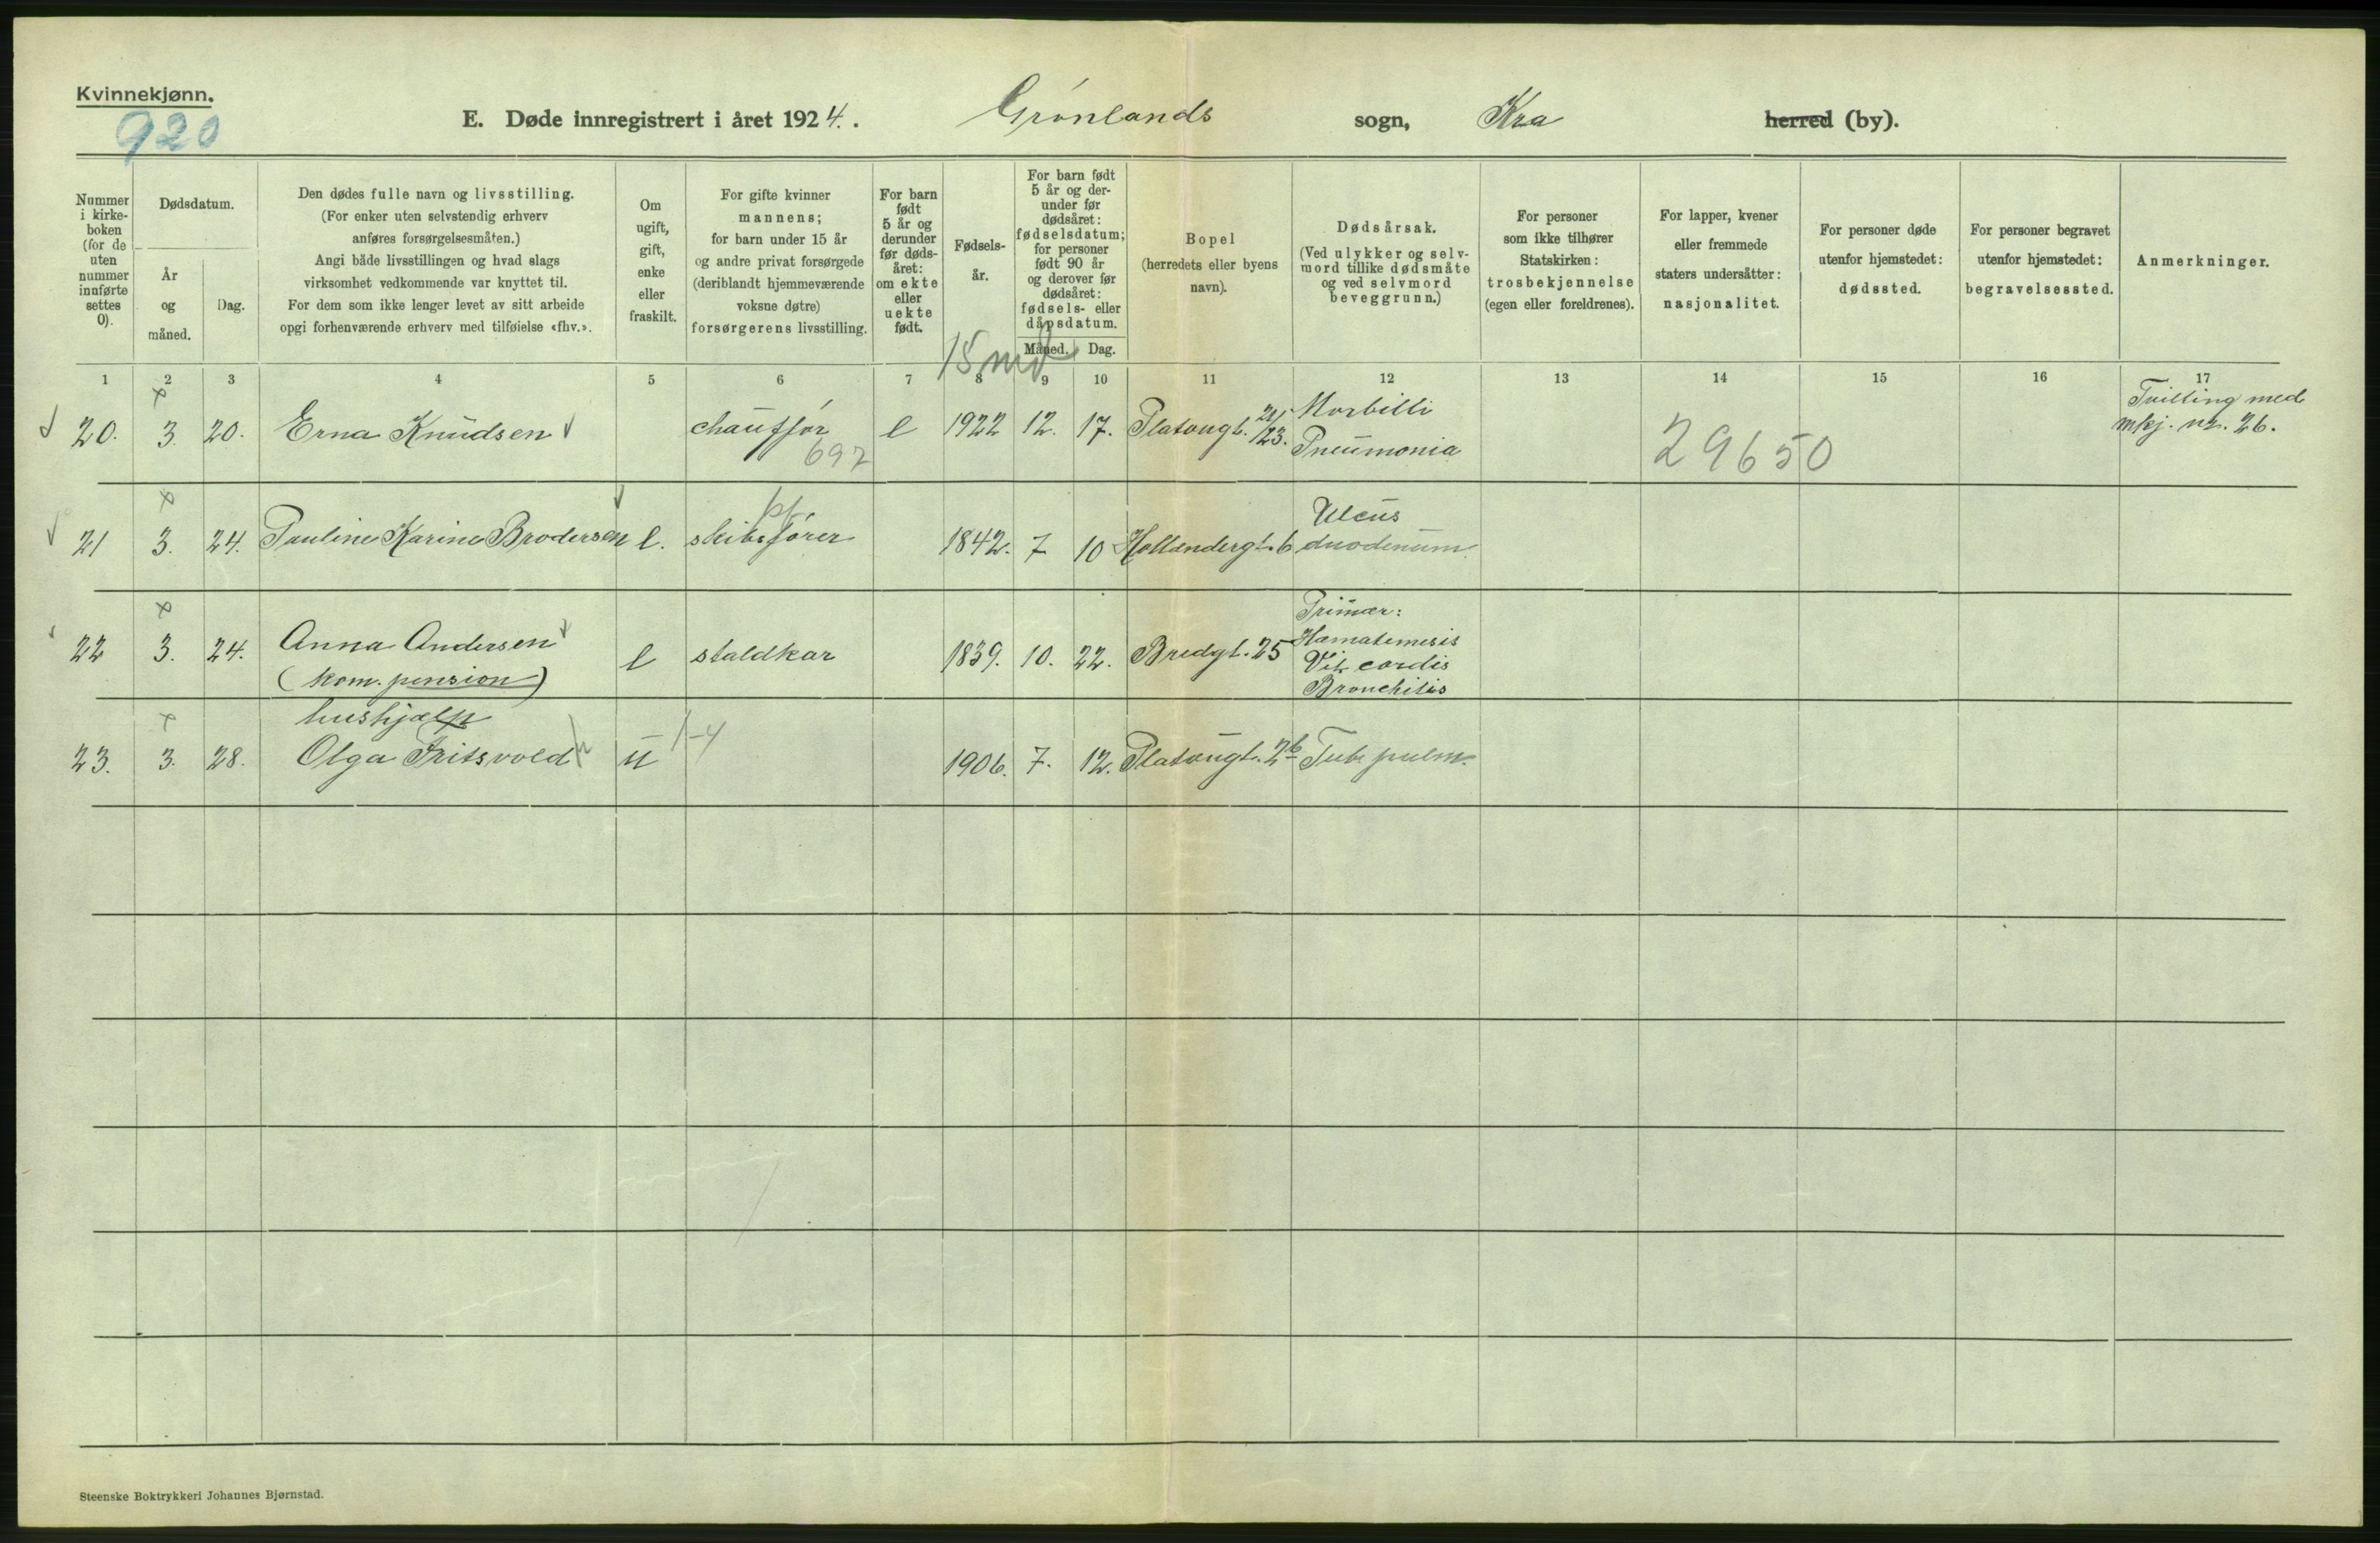 Kvinnekjønn.
920
E. Døde innregistrert i året 1924. Grønlands sogn, Kra herred (by).
Nummer i kirkeboken (for de uten nummer innførte settes 0).
Dødsdatum.
År og måned.
Dag.
Den dødes fulle navn og livsstilling.
(For enker uten selvstendig erhverv
anføres forsørgelsesmåten.)
Angi både livsstillingen og hvad slags
virksomhet vedkommende var knyttet til.
For dem som ikke lenger levet av sitt arbeide
opgi forhenværende erhverv med tilføielse «fhv.».
Om
ugift,
gift,
enke
eller
fraskilt.
For gifte kvinner
mannens;
for barn under 15 år
og andre privat forsørgede
(deriblandt hjemmeværende
voksne døtre)
forsørgerens livsstilling.
For barn
født
5 år og
derunder
før døds-
året:
om ekte
eller
uekte
født.
Fødsels-
år.
For barn født
5 år og der-
under før
dødsåret:
fødselsdatum;
for personer
født 90 år
og derover før
dødsåret:
fødsels- eller
dåpsdatum.
Måned. Dag.
Bopel
(herredets eller byens
navn).
Dødsårsak.
(Ved ulykker og selv-
mord tillike dødsmåte
og ved selvmord
beveggrunn.)
For personer
som ikke tilhører
Statskirken:
trosbekjennelse
(egen eller foreldrenes).
For lapper, kvener
eller fremmede
staters undersåtter:
nasjonalitet.
For personer døde
utenfor hjemstedet:
dødssted.
For personer begravet
utenfor hjemstedet:
begravelsessted.
Anmerkninger.
15 md
1 2 3 4 5 6 7 8 9 10 11 12 13 14 15 16 17
20. 3. 20. Erna Knudsen chauffør e 1922 12. 17. Platougt. 21/23. Morbilli
Pneumonia
697
29650
Tvilling med
mkj. nr. 26.
21 3. 24. Pauline Karine Brodersen e. skibsfører 1842. 7 10 Hollendergt. 6 Ulcus
duodenum.
22 3. 24. Anna Andersen
(kom. pension)
e staldkar 1839. 10. 22. Bredgt. 25 Primær:
Hæmatemesis
Vit. cordis
Bronchitis
hushjælp
23. 3. 28. Olga Fritsvold u 1-4 1906. 7. 12. Platougt. 26 Tub. pulm.
Steenske Boktrykkeri Johannes Bjørnstad.